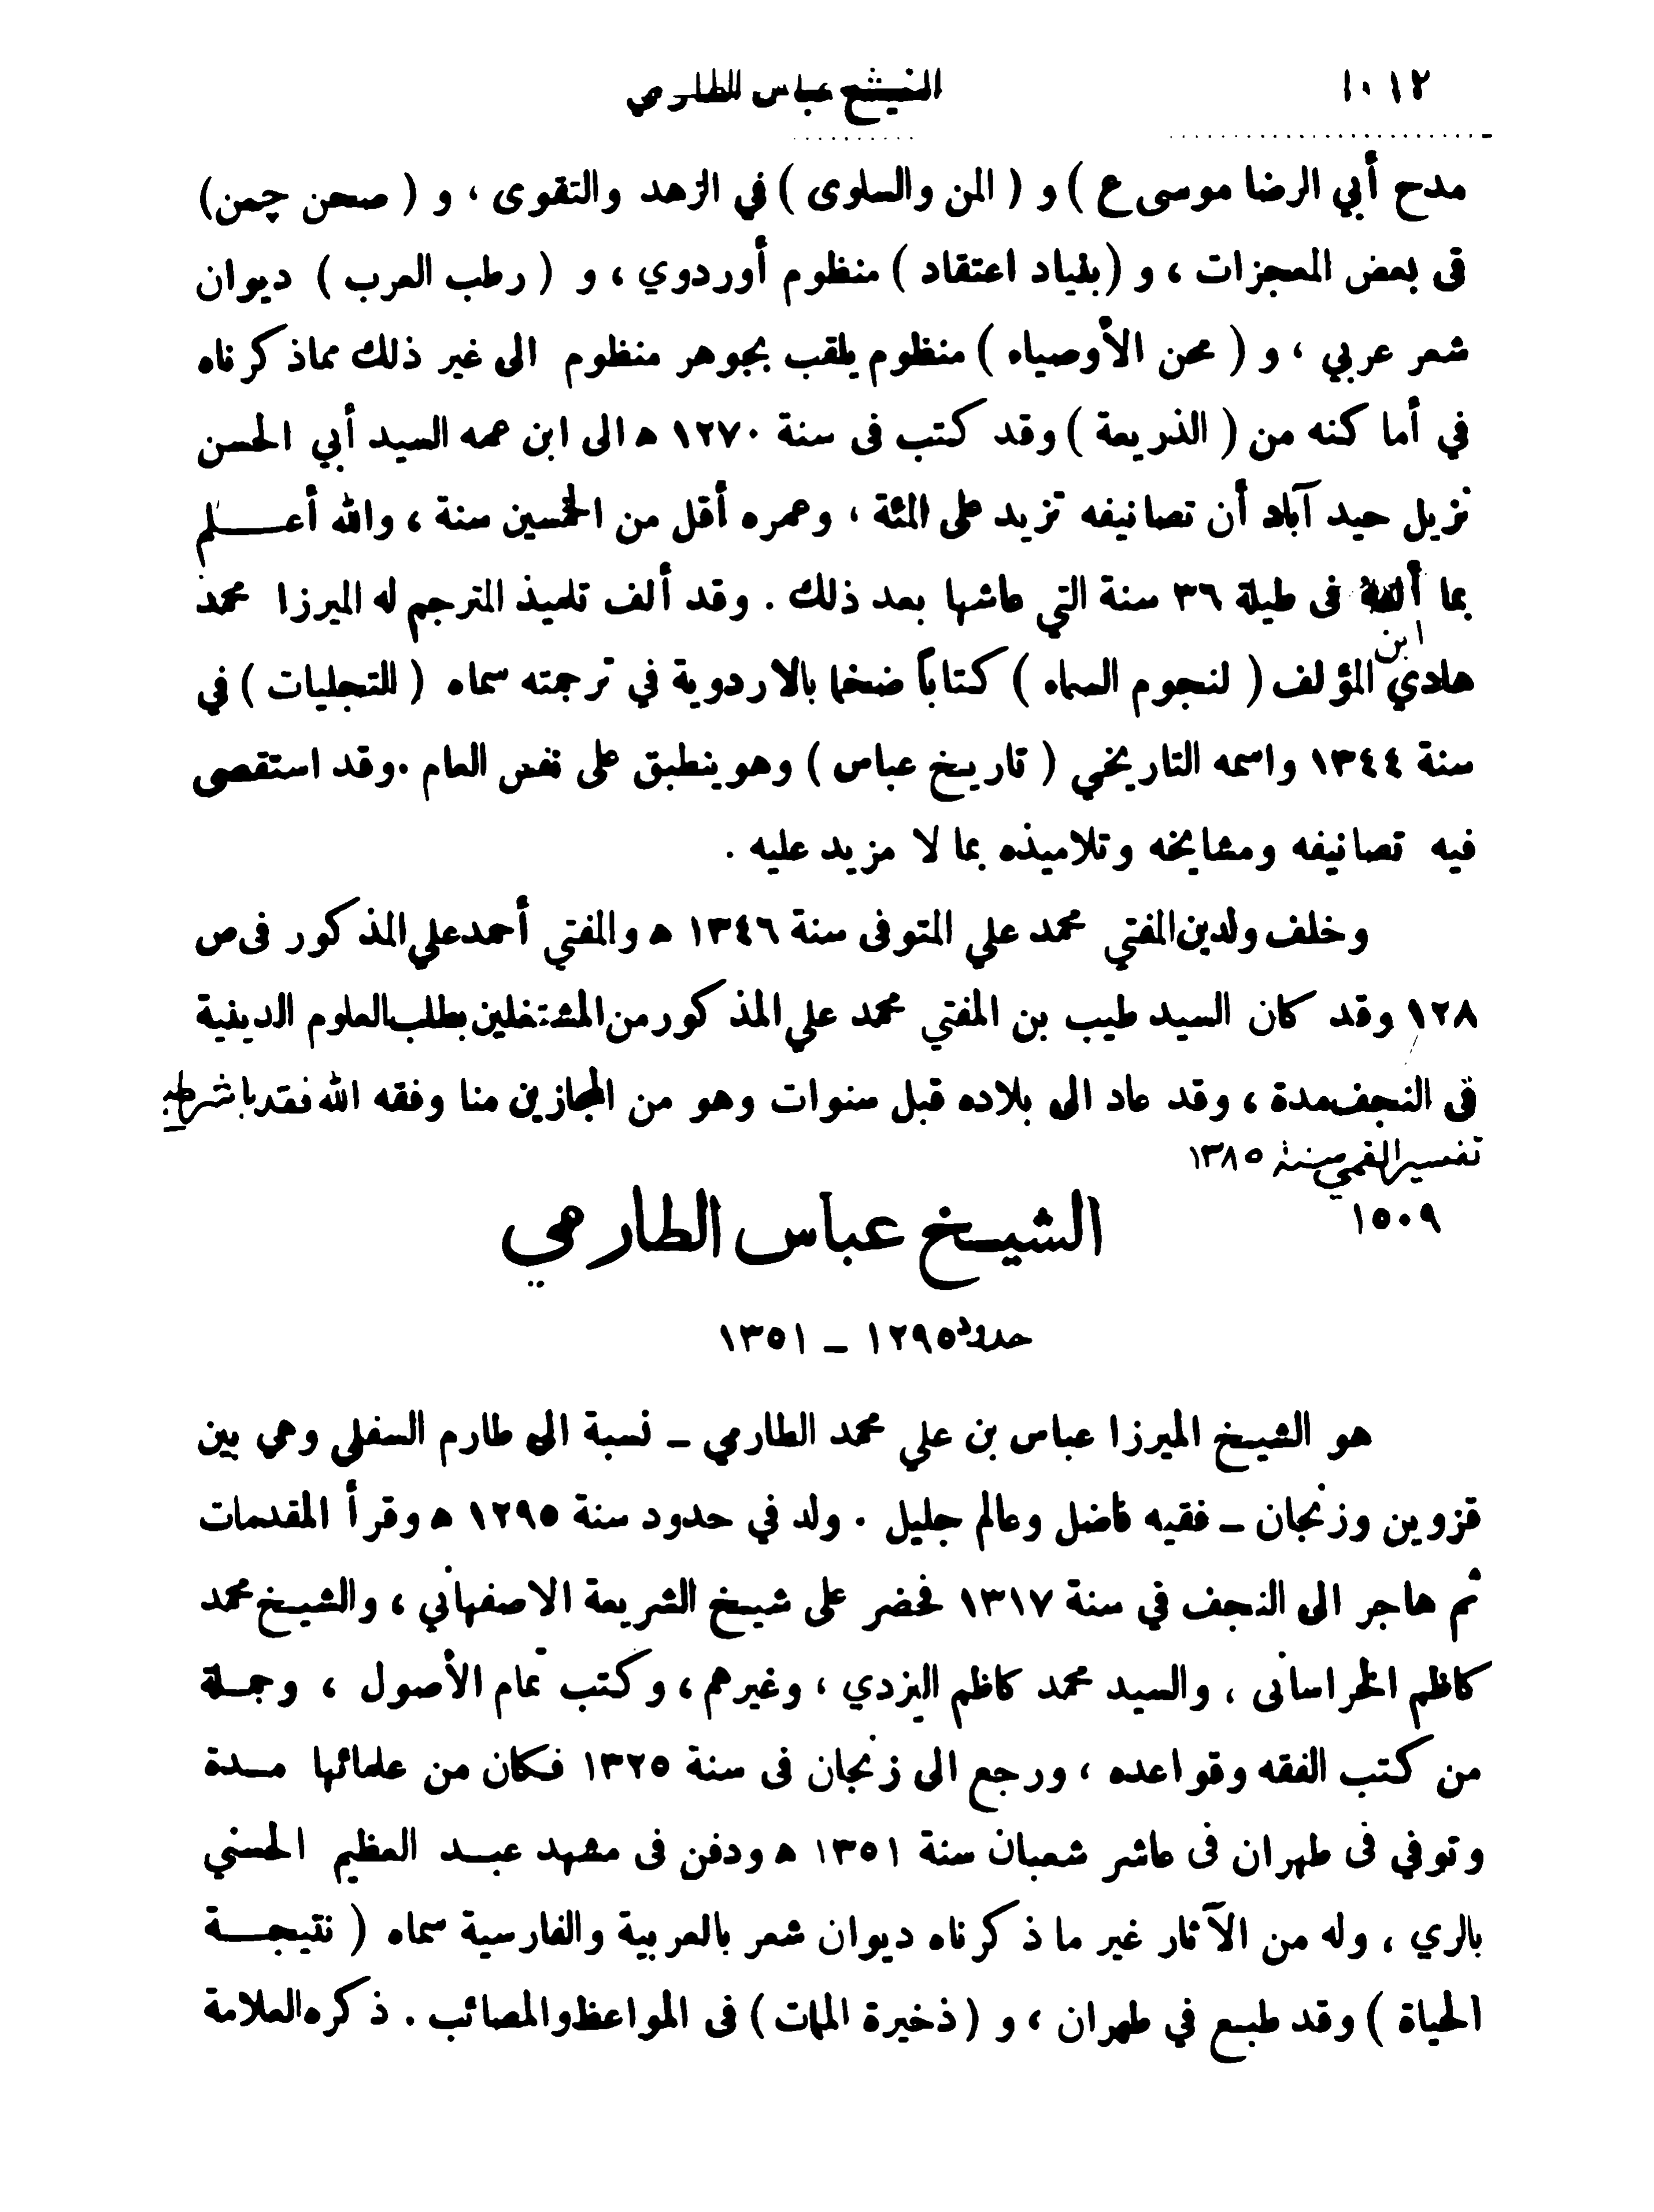 ١٠١٢
الشيخ عباس الطارمي
مدح أبي الرضا موسى ع ) و ( المن والسلوى ) في الزهد والتقوى ، و ( صحن چمن)
فى بعض المعجزات ، و (بنياد اعتقاد ) منظوم أوردوي ، و ( رطب العرب ) ديوان
شعر عربي ، و ( محن الأوصياء ) منظوم يلقب بجوهر منظوم الى غير ذلك مماذكرناه
في أماكنه من ( الذريعة ) وقد كتب فى سنة ١٢٧٠ ه الى ابن عمه السيد أبي الحسن
نزيل حيد آباد أن تصانيفه تزيد على المئة ، وعمره أقل من الخمسين سنة ، والله أعلم
بما ألفه فى طيلة ٣٦ سنة التي عاشها بعد ذلك . وقد ألف تلميذ المترجم له الميرزا محمد
ابن
هادي المؤلف ( لنجوم السماء ) كتاباً ضخما بالاردوية في ترجمته سماه ( للتجليات ) في
سنة ١٣٤٤ واسمه التاريخي ( تاريخ عباس ) وهو ينطبق على نفس العام . وقد استقصى
فيه تصانيفه ومشايخه وتلاميذه بما لا مزيد عليه .
وخلف ولدين المفتي محمد علي المتوفى سنة ١٣٤٦ ه والمفتي أحمد علي المذكور فى ص
١٢٨ وقد كان السيد طيب بن المفتي محمد علي المذكور من المشتغلين بطلب العلوم الدينية
فى النجف مدة ، وقد عاد الى بلاده قبل سنوات وهو من المجازين منا وفقه الله فقد باشر طبع
تفسير القمي سنة ١٣٨٥
١٥٠٩
الشيخ عباس الطارمي
حدود ١٢٩٥ – ١٣٥١
هو الشيخ الميرزا عباس بن علي محمد الطارمي – نسبة الى طارم السفلى وهي بين
قزوين وزنجان – فقيه فاضل وعالم جليل . ولد في حدود سنة ١٢٩٥ ه وقرأ المقدمات
ثم هاجر الى النجف في سنة ١٣١٧ فحضر على شيخ الشريعة الاصفهاني ، والشيخ محمد
كاظم الخراسانى ، والسيد محمد كاظم اليزدي ، وغيرهم ، وكتب تمام الأصول ، وجملة
من كتب الفقه وقواعده ، ورجع الى زنجان فى سنة ١٣٢٥ فكان من علمائها مدة
وتوفي فى طهران فى عاشر شعبان سنة ١٣٥١ ه ودفن فى مشهد عبد العظيم الحسني
بالري ، وله من الآثار غير ما ذكرناه ديوان شعر بالعربية والفارسية سماه ( نتيجة
الحياة ) وقد طبع في طهران ، و ( ذخيرة الممات ) فى المواعظ والمصائب . ذكره العلامة